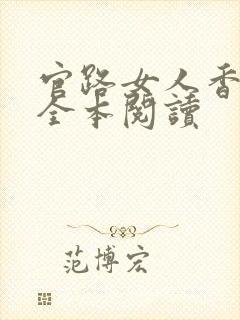 官路女人香
全本閱讀
范博宏